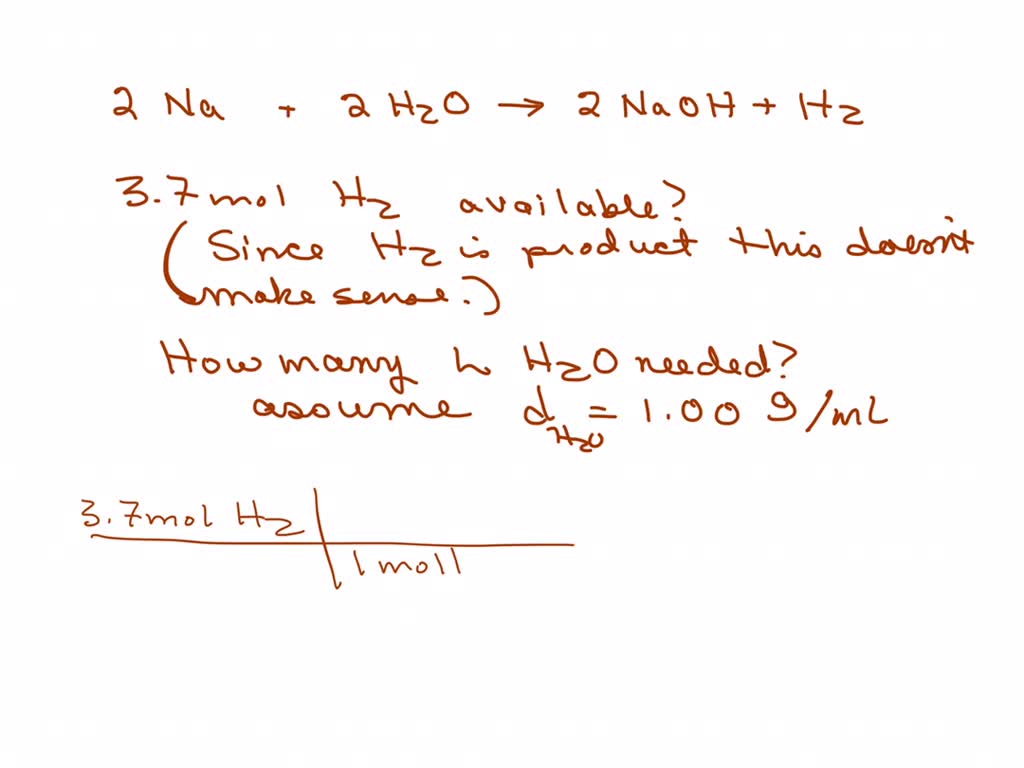 2 Na + 2 H2O → 2 NaOH + H2
3.7 mol H2 available?
(Since H2 is product this doesn't
make sense.)
How many L H2O needed?
assume dH2O = 1.00 g/mL
3.7 mol H2
1 mol